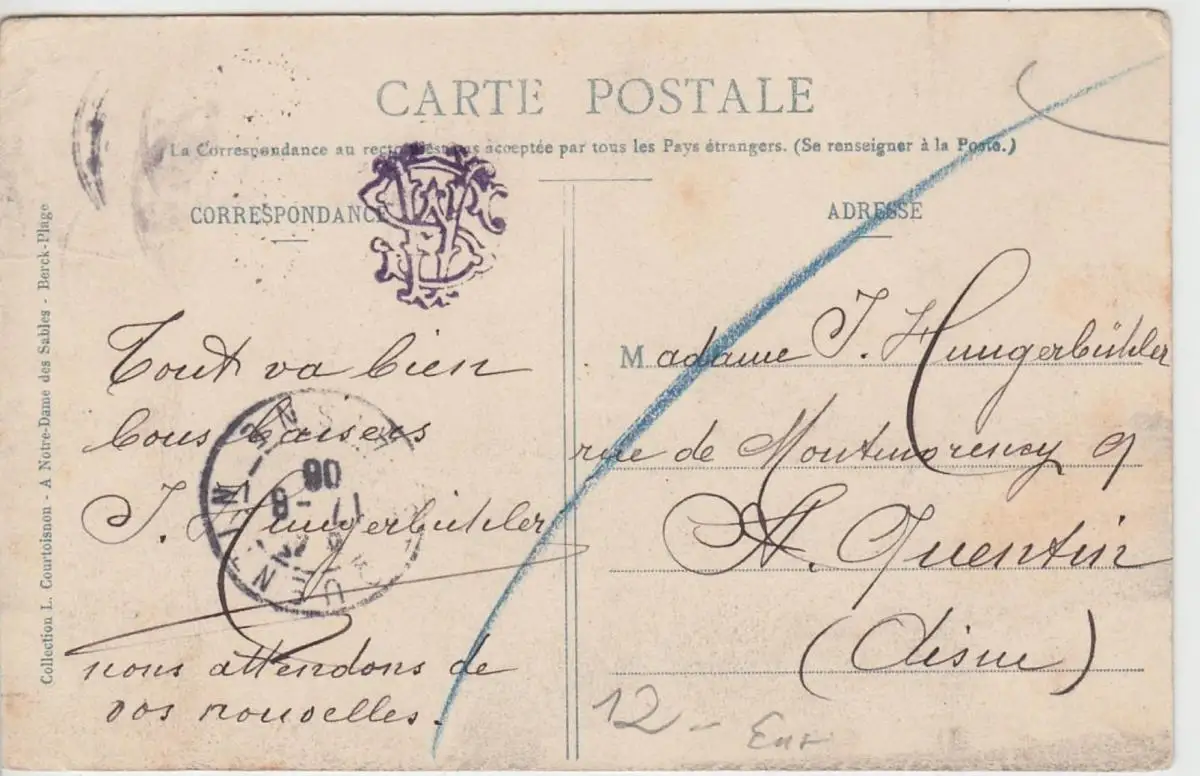 CARTE POSTALE
La Correspondance au recto n'est pas acceptée par tous les Pays étrangers. (Se renseigner à la Poste.)
CORRESPONDANCE
Tout va bien
bons baisers
J. Hungerbühler
nous attendons de
vos nouvelles.
ADRESSE
Madame J. Hungerbühler
rue de Montmorency 9
St. Quentin
(Aisne)
12 -
Collection L. Courtoisnon - A Notre-Dame des Sables - Berck-Plage
QUENTIN
17 - 8
08